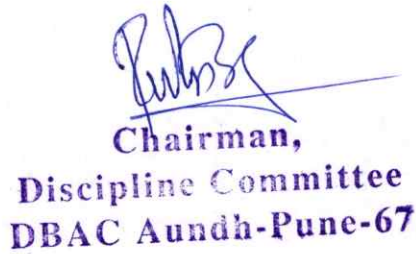 Chairman,
Discipline Committee
DBAC Aundh-Pune-67